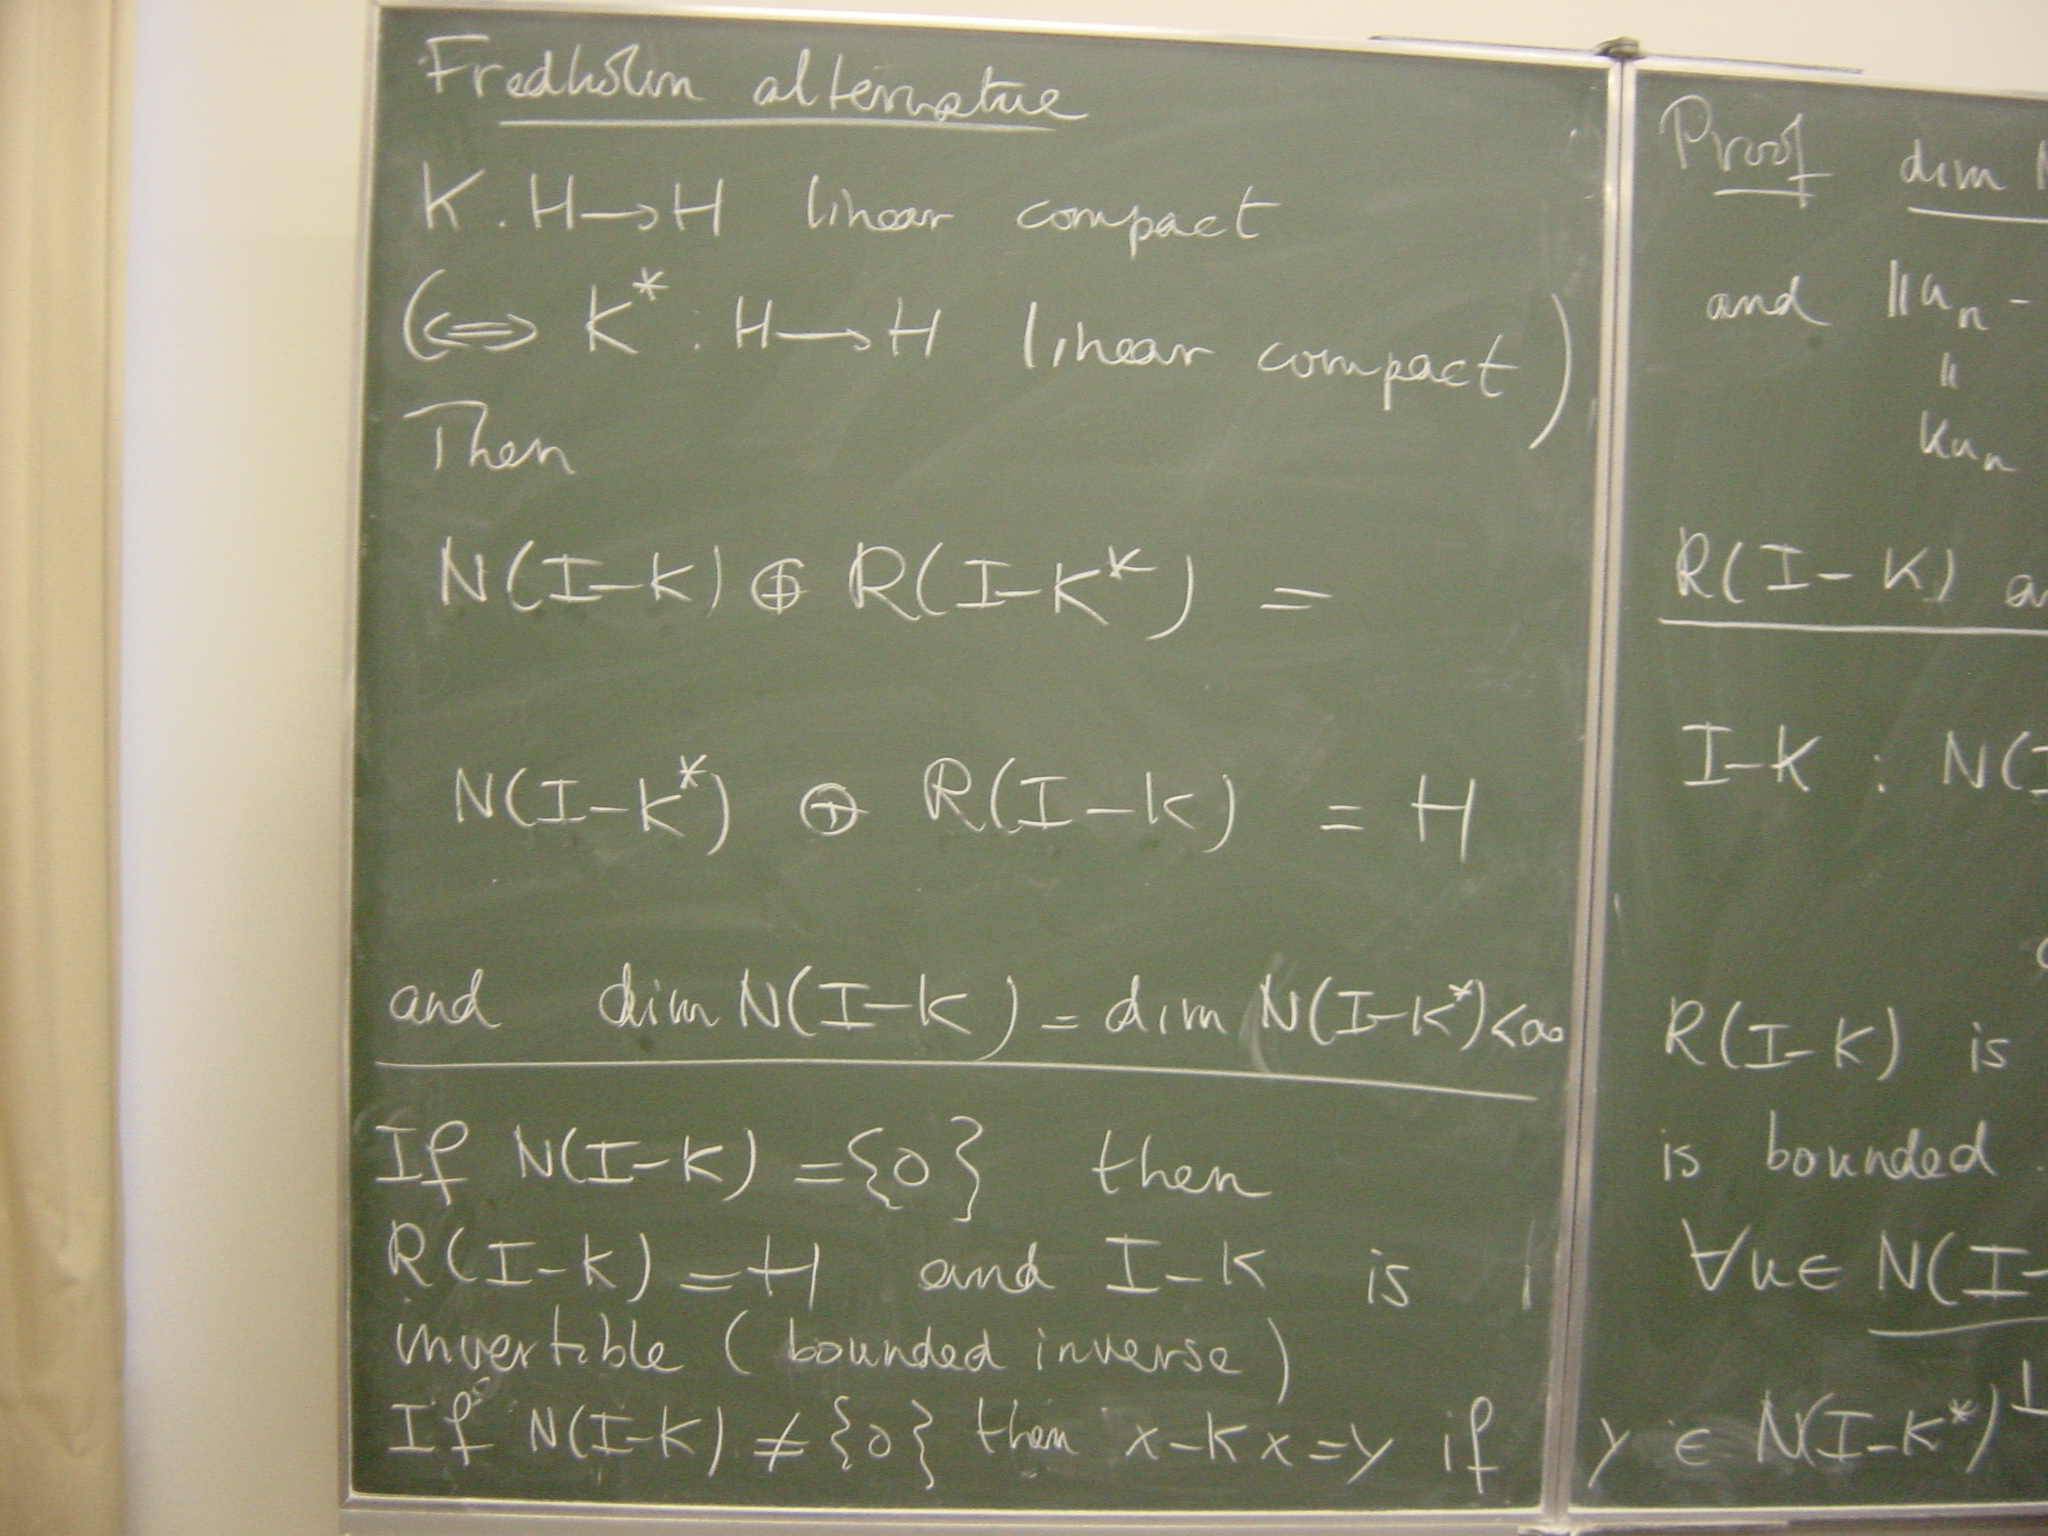 Fredholm alternative
K : H → H linear compact
(⇔ K* : H → H linear compact)
Then
N(I-K) ⊕ R(I-K*) =
N(I-K*) ⊕ R(I-K) = H
and dim N(I-K) = dim N(I-K*) < ∞
If N(I-K) = {0} then
R(I-K) = H and I-K is
invertible (bounded inverse)
If N(I-K) ≠ {0} then x-Kx=y if y ∈ N(I-K*)⊥
Proof dim N
and ||un -
"
Kun
R(I-K)
I-K : N(I
R(I-K) is
is bounded.
∀u∈ N(I-